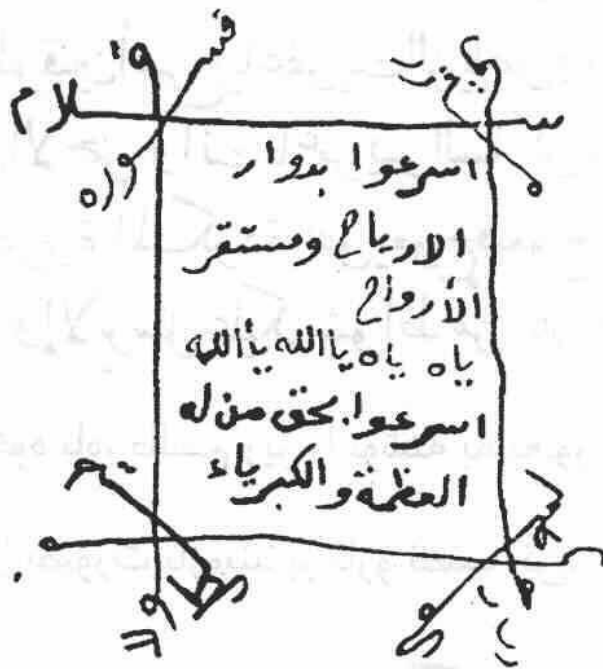 اسرعوا بدوار
الارياح ومستقر
الأرواح
ياه ياه ياالله ياألله
اسرعوا بحق من له
العظمة والكبرياء